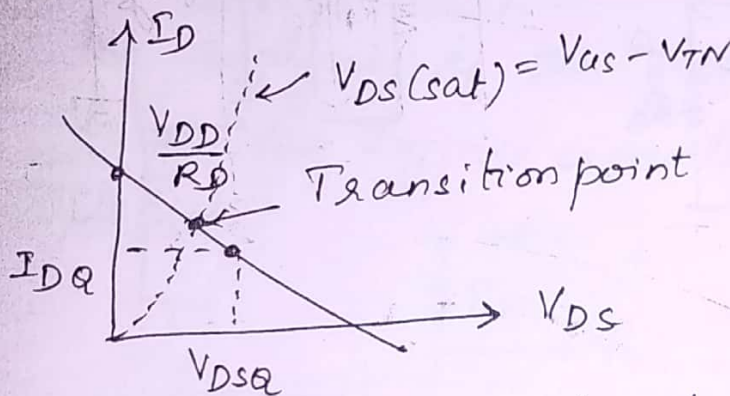 I_D
V_DS (sat) = V_GS - V_TN
V_DD
R_D
Transition point
I_DQ
V_DS
V_DSQ